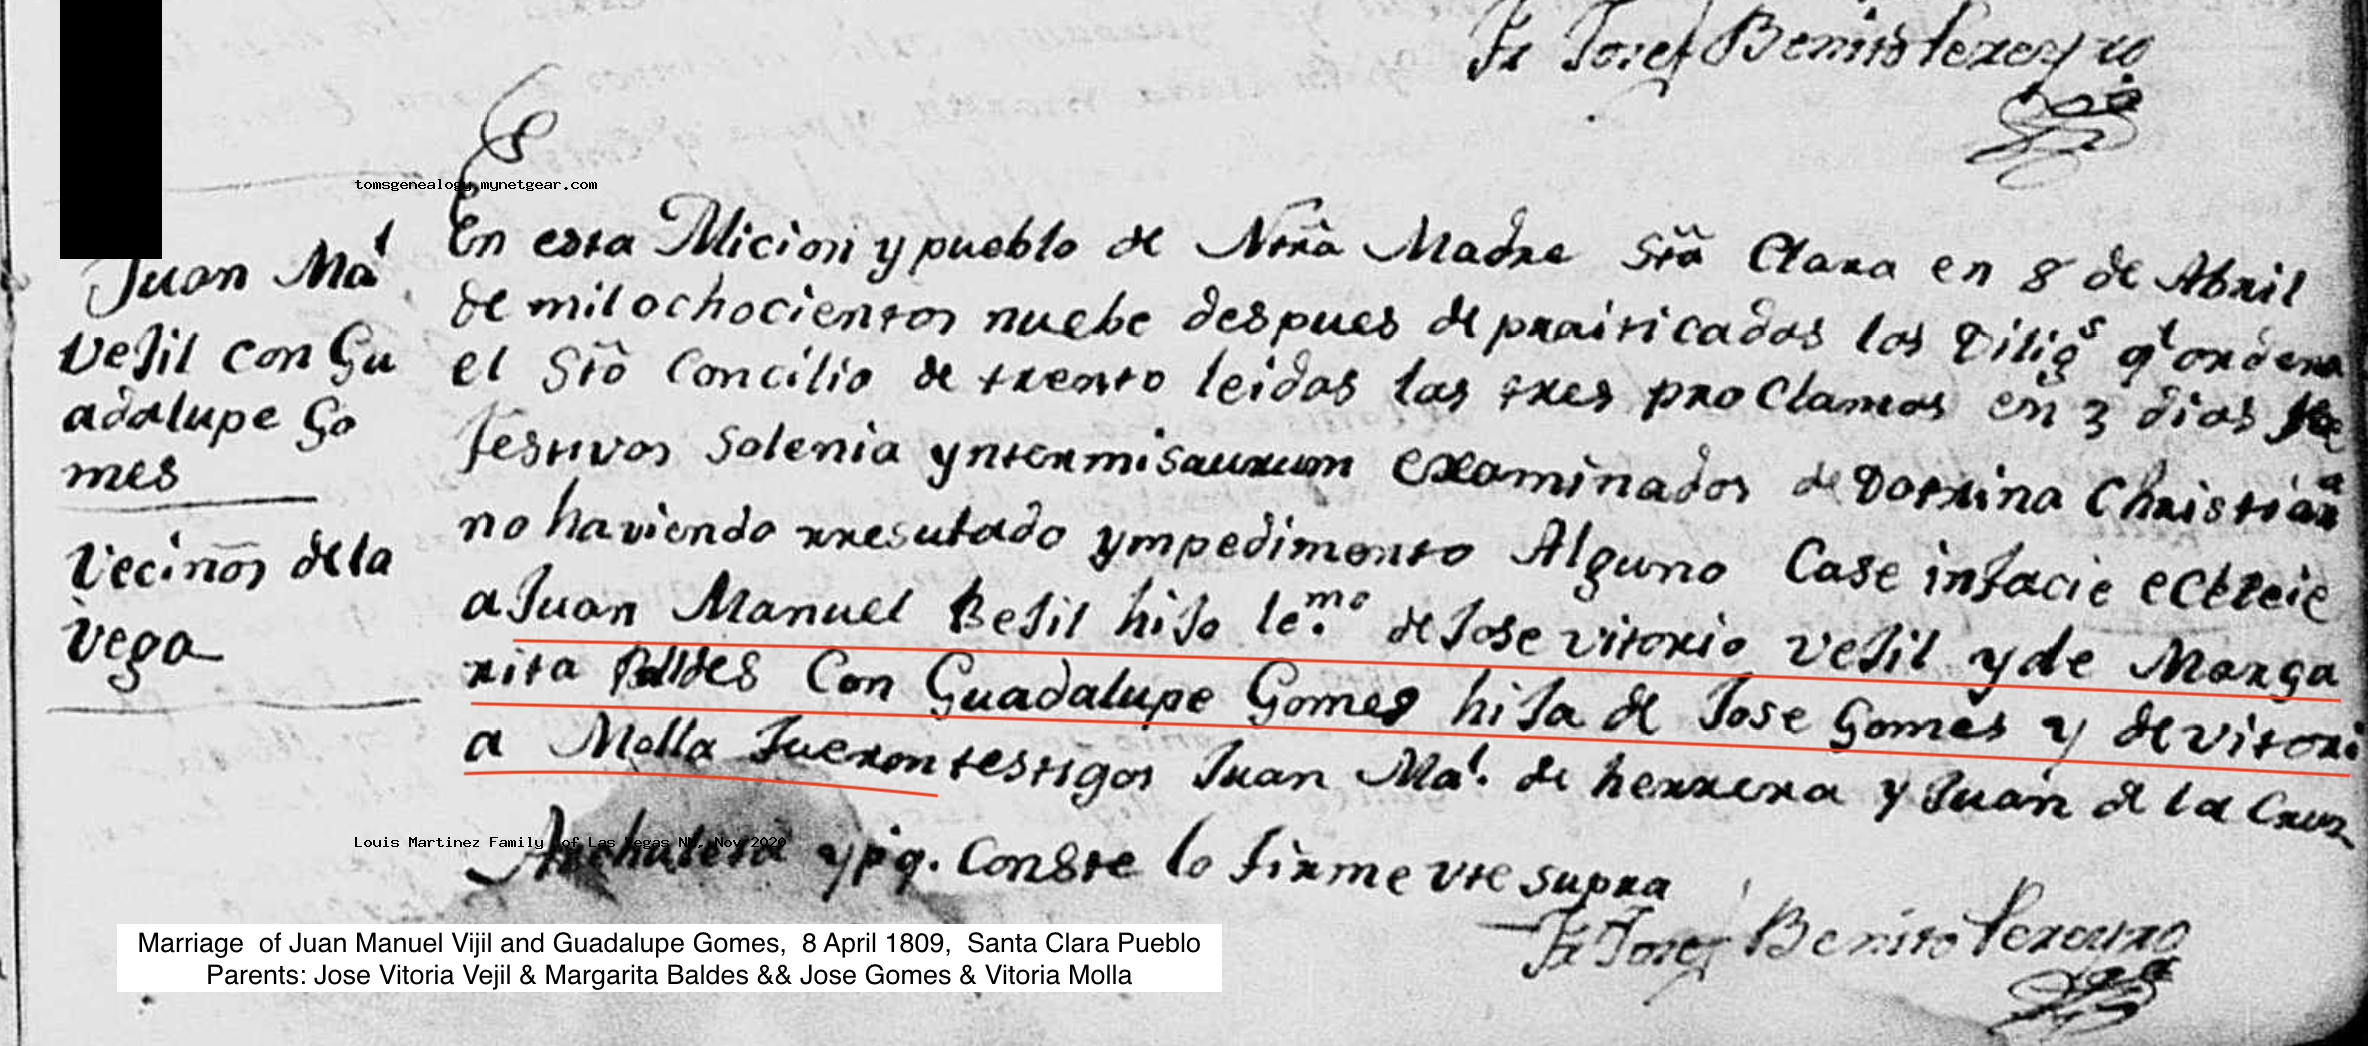 Fr Josef Benito Pereyro
tomsgenealogy.mynetgear.com
Juan Mal
Vejil con Gu
adalupe Go
mes
Vecinos de la
Vega
En esta Micion y pueblo de Ntrã Madre Stã Clara en 8 de Abril
de mil ochocientos nuebe despues de praiticadas las Diligs ql ordena
el Stõ Concilio de trento leidas las tres proclamas en 3 dias
festivos Solenia yntermisaurum examinados de Dotrina Christiana
no haviendo rresutado ympedimento Alguno Case infacie ecleeie
a Juan Manuel Bejil hijo le.mo de Jose vitorio vejil y de Marga
rita Baldes Con Guadalupe Gomes hija de Jose Gomes y de vitori
a Molla fueron testigos Juan Mal. de herrera y Juan de la Cruz
Archuleta y p.q. Conste lo firme vte supra
Louis Martinez Family of Las Vegas NM, Nov 2020
Fr Josef Benito Pereyro
Marriage of Juan Manuel Vijil and Guadalupe Gomes, 8 April 1809, Santa Clara Pueblo
Parents: Jose Vitoria Vejil & Margarita Baldes && Jose Gomes & Vitoria Molla